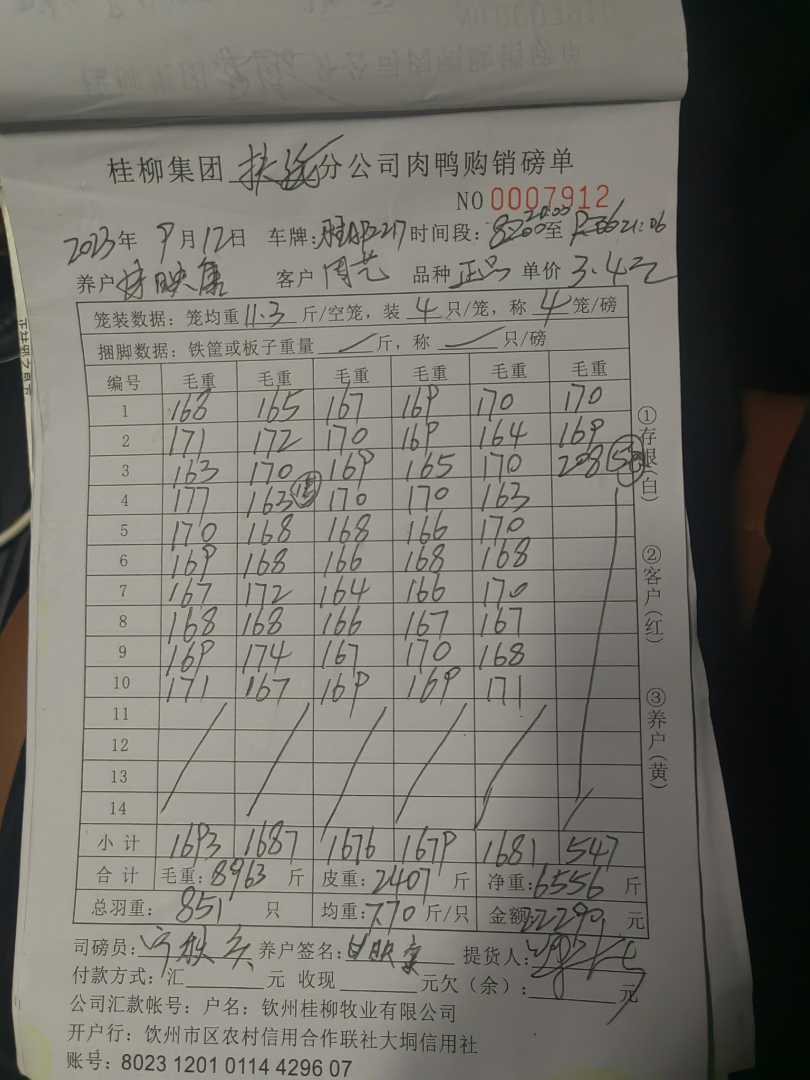 桂柳集团 扶绥 分公司肉鸭购销磅单
NO 0007912
2023年 9月12日 车牌: 时间段: 20:00至 21:06
养户 客户 周艺 品种 正品 单价 3.4元
笼装数据：笼均重 11.3 斤/空笼，装 4 只/笼，称 4 笼/磅
捆脚数据：铁筐或板子重量 / 斤，称 / 只/磅
编号 毛重 毛重 毛重 毛重 毛重 毛重
1 168 165 167 169 170 170
2 171 172 170 169 164 169
3 163 170 169 165 170 208
4 177 163 170 170 163
5 170 168 168 166 170
6 169 168 166 168 168
7 167 172 164 166 170
8 168 168 166 167 167
9 169 174 167 170 168
10 171 167 169 169 171
11
12
13
14
小计 1693 1687 1676 1679 1681 547
合计 毛重: 8963 斤 皮重: 2407 斤 净重: 6556 斤
总羽重: 851 只 均重: 7.70 斤/只 金额: 22290 元
司磅员: 养户签名: 提货人:
付款方式: 汇 元 收现 元欠（余）: 元
公司汇款帐号：户名：钦州桂柳牧业有限公司
开户行：饮州市区农村信用合作联社大垌信用社
账号：8023 1201 0114 4296 07
①存根(白)
②客户(红)
③养户(黄)